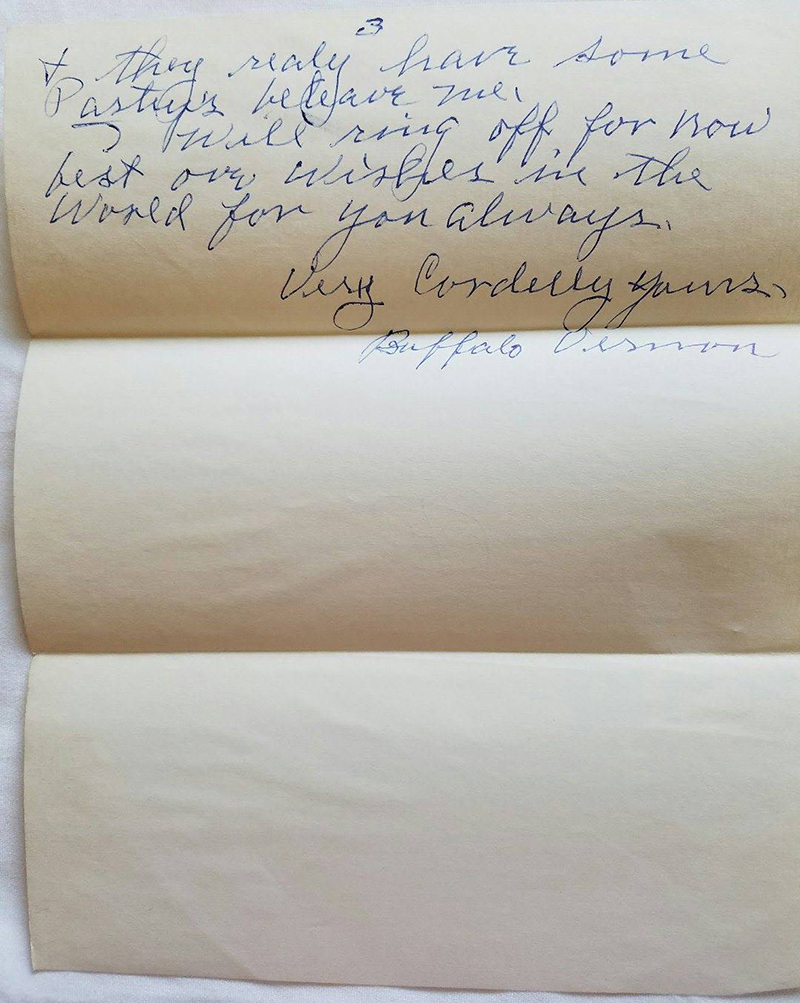 3
+ they realy have some
Partys beleave me.
I Will ring off for now
best ove wishes in the
World for you always.
Very Cordelly yours.
Buffalo Vernon